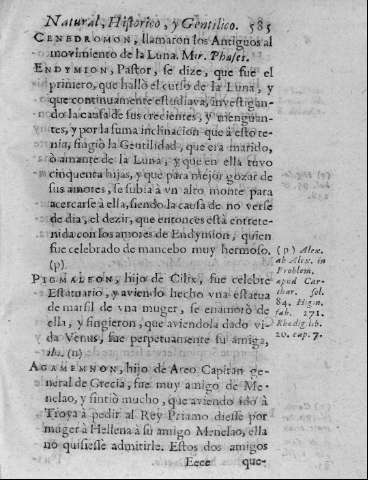 Natural, Historico, y Gentilico. 585
CENEDROMON, llamaron los Antiguos al
movimiento de la Luna. Mer. Phases.
ENDYMION, Pastor, se dize, que fue el
primero, que hallò el curso de la Luna, y
que continuamente estudiava, investigan-
do la causa de sus crecientes, y menguan-
tes, y por la suma inclinacion que à esto te-
nia, fingiò la Gentilidad, que era marido,
ò amante de la Luna, y que en ella tuvo
cinquenta hijas, y que para mejor gozar de
sus amores, se subia à vn alto monte para
acercarse à ella, siendo la causa de no verse
de dia, el dezir, que entonces està entrete-
nida con los amores de Endymion, quien
fue celebrado de mancebo muy hermoso.
(p).
PIGMALEON, hijo de Cilix, fue celebre
Estatuario, y aviendo hecho vna estatua
de marfil de vna muger, se enamorò de
ella, y fingieron, que aviendola dado vi-
da Venus, fue perpetuamente su amiga,
ibi. (n)
AGAMEMNON, hijo de Areo Capitan ge-
neral de Grecia, fue muy amigo de Me-
nelao, y sintiò mucho, que aviendo ido à
Troya à pedir al Rey Priamo diesse por
muger à Hellena à su amigo Menelao, ella
no quisiesse admitirle. Estos dos amigos
Eeee que-
(p) Alex.
ab Alex. in
Problem.
apud Car-
thar. fol.
84. Higin.
fab. 271.
Rhodig. lib.
20. cap. 7.